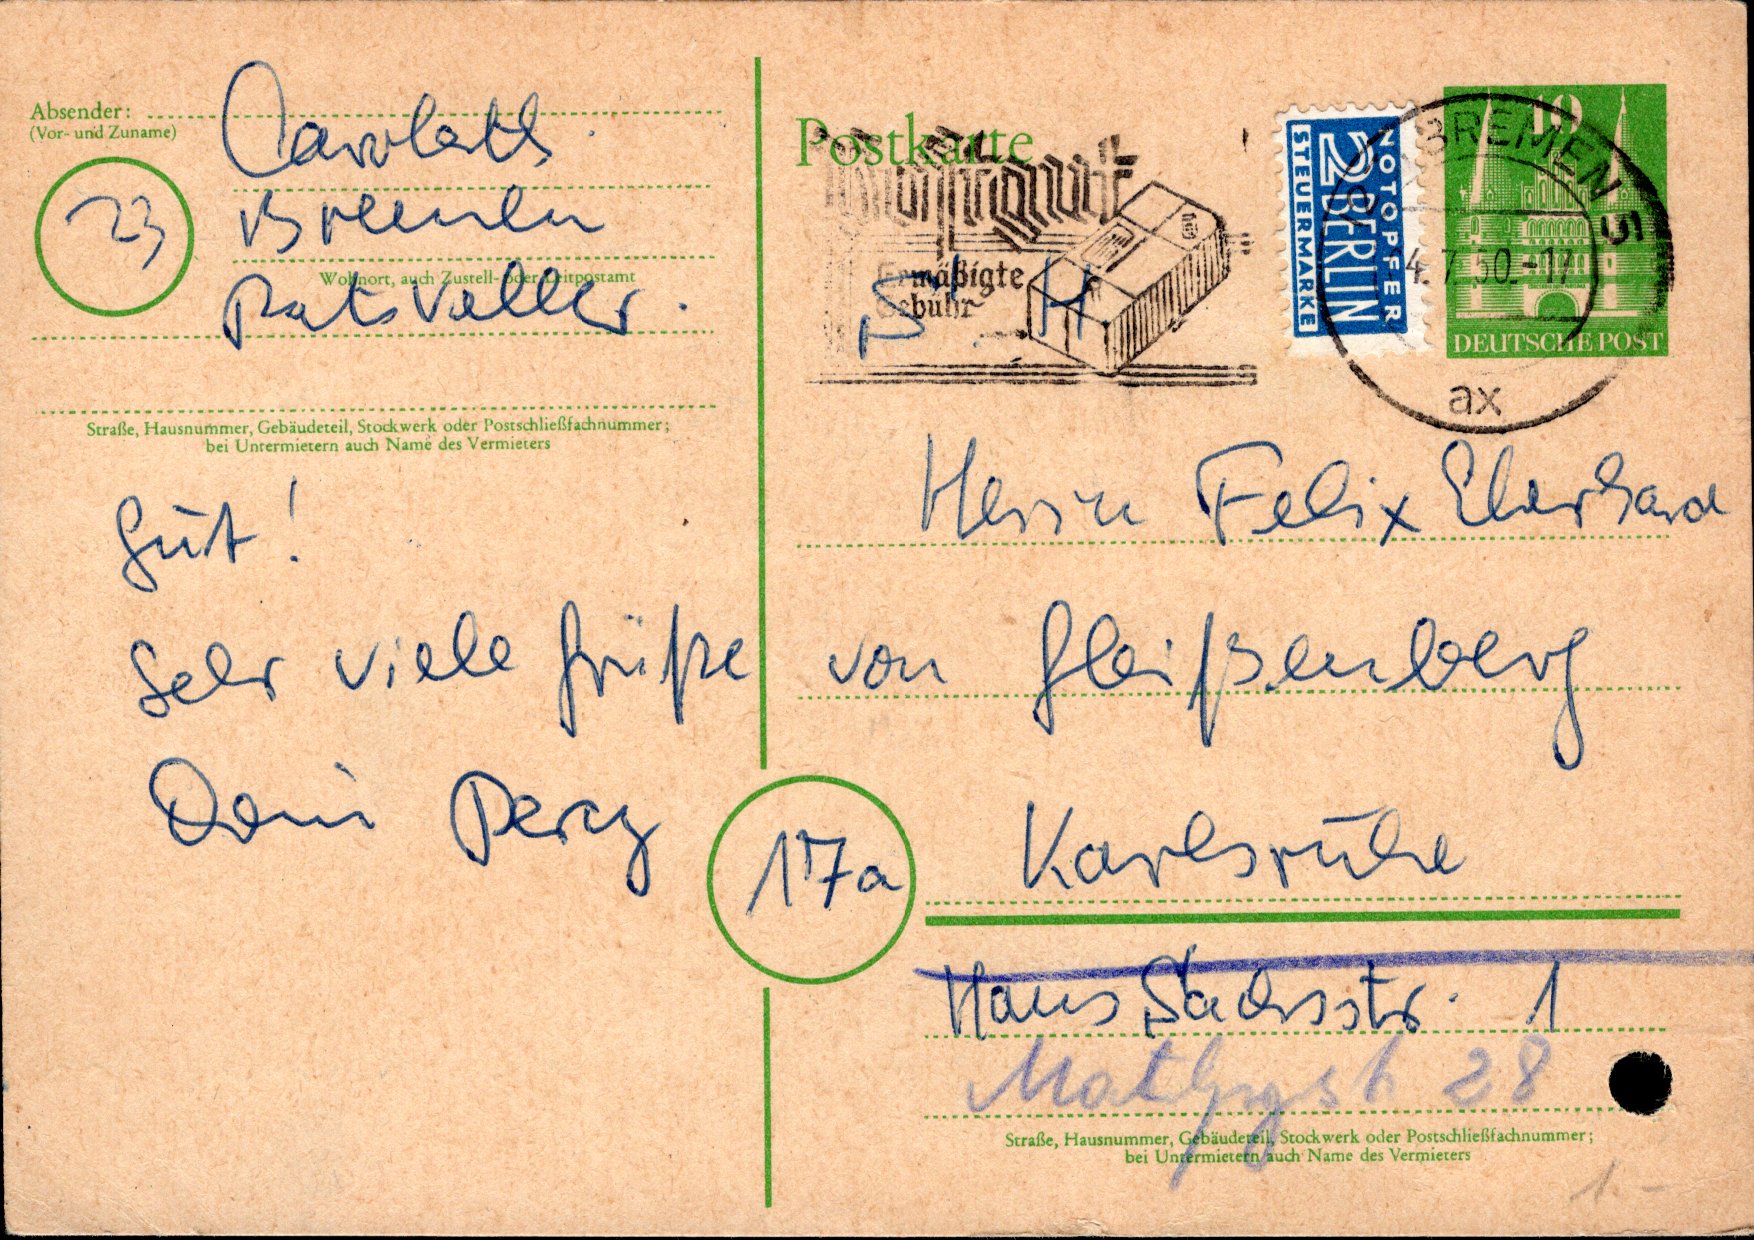 Absender:
(Vor- und Zuname)
Carolath.
23
Bremen
Wohnort, auch Zustell- oder Leitpostamt
Ratskeller.
Straße, Hausnummer, Gebäudeteil, Stockwerk oder Postschließfachnummer;
bei Untermietern auch Name des Vermieters
Gut!
Sehr viele Grüße
Dein Percy
Postkarte
Ermäßigte
Gebühr
NOTOPFER
2 BERLIN
STEUERMARKE
10
DEUTSCHE POST
BREMEN 5
4.7.50.-17
ax
Herrn Felix Eberhard
von Gleißenberg
17a
Karlsruhe
Hans Sachsstr. 1
28
Straße, Hausnummer, Gebäudeteil, Stockwerk oder Postschließfachnummer;
bei Untermietern auch Name des Vermieters
1.-